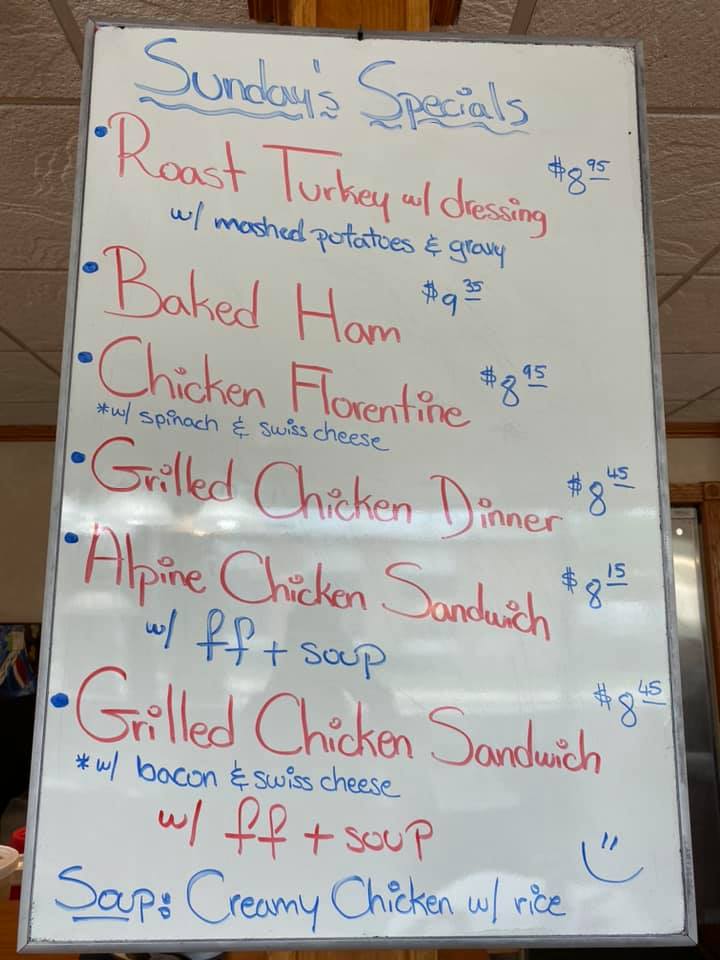 Sunday's Specials
• Roast Turkey w/ dressing $8 95
w/ mashed potatoes & gravy
• Baked Ham $9 35
• Chicken Florentine $8 95
*w/ spinach & swiss cheese
• Grilled Chicken Dinner $8 45
• Alpine Chicken Sandwich $8 15
w/ ff + soup
• Grilled Chicken Sandwich $8 45
*w/ bacon & swiss cheese
w/ ff + soup
Soup: Creamy Chicken w/ rice